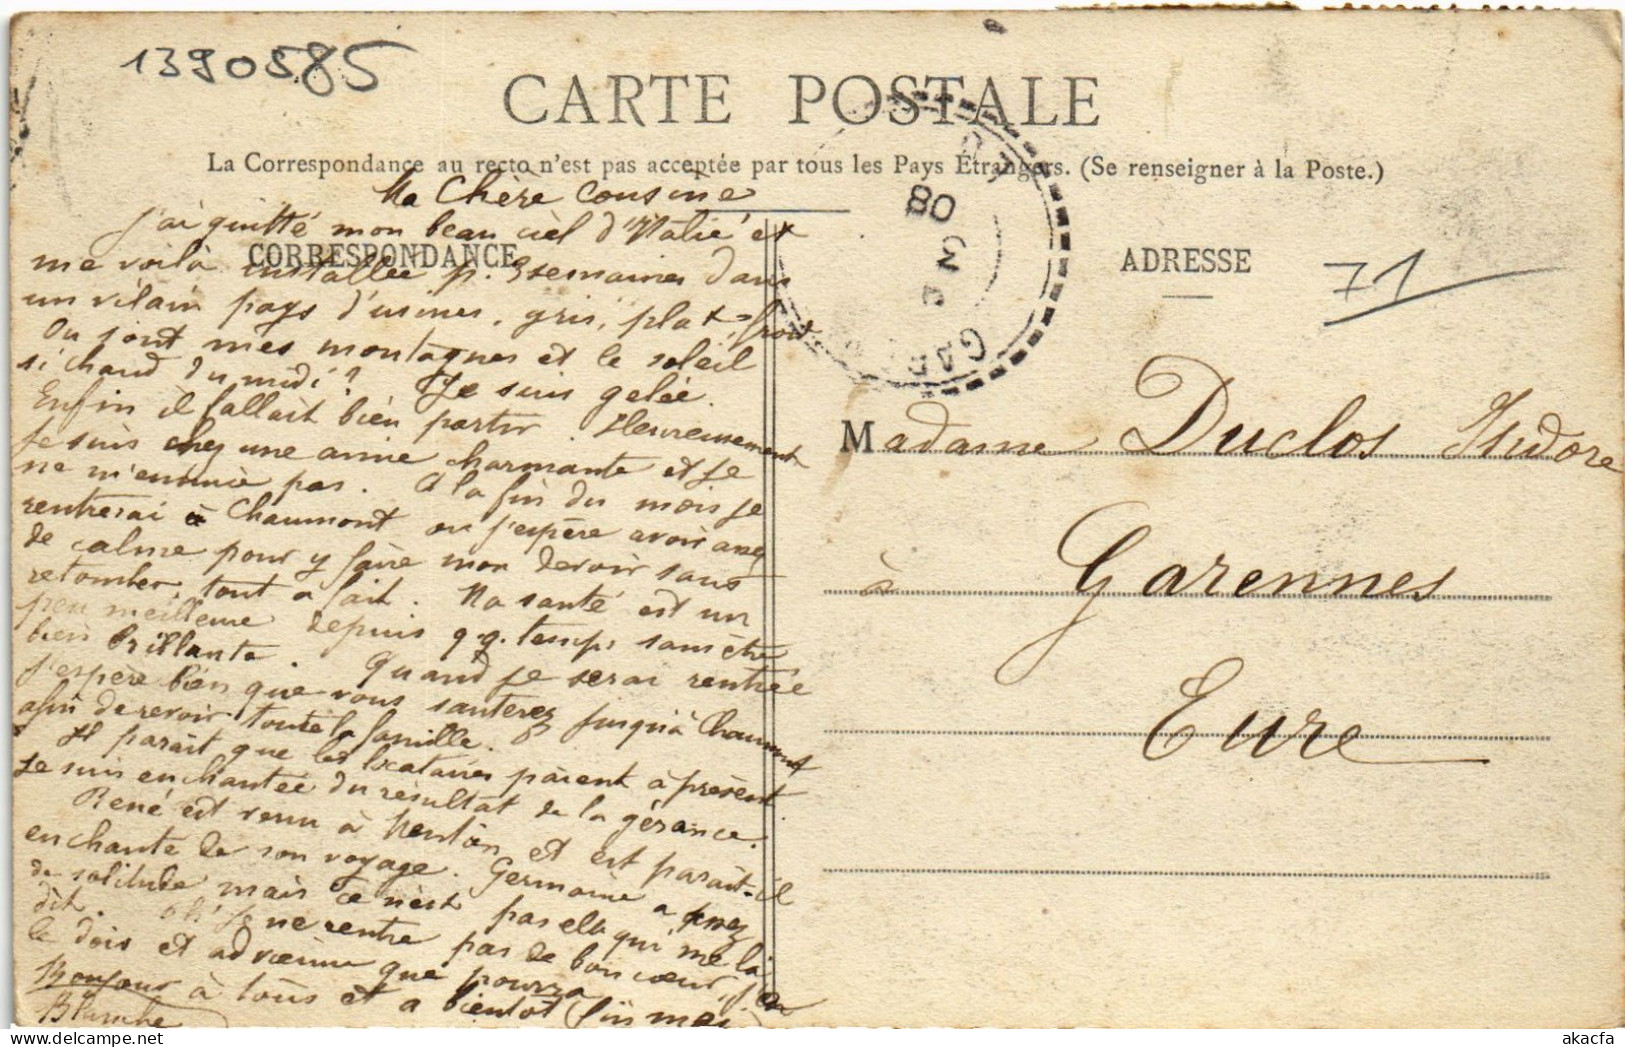 1390585
CARTE POSTALE
La Correspondance au recto n'est pas acceptée par tous les Pays Étrangers. (Se renseigner à la Poste.)
CORRESPONDANCE
Ma Chère Cousine
j'ai quitté mon beau ciel d'Italie et
me voilà installée p. 3 semaines dans
un vilain pays d'usines, gris, plat, froid
Ou sont mes montagnes et le soleil
si chaud du midi? Je suis gelée.
Enfin il fallait bien partir. Heureusement
je suis chez une amie charmante et je
ne m'ennuie pas. A la fin du mois je
rentrerai à Chaumont ou j'espère avoir assez
de calme pour y faire mon devoir sans
retomber tout a fait. Ma santé est un
peu meilleure depuis q.q. temps sans être
bien brillante. Quand je serai rentrée
j'espère bien que vous sauterez jusqu'à Chaumont
afin de revoir toute la famille.
Il parait que les locataires paient à présent
Je suis enchantée du résultat de la gérance.
René est venu à Menton et est parait-il
enchanté de son voyage. Germaine a assez
de solitude mais ce n'est pas elle qui me l'a
dit. Oh! je ne rentre pas de bon cœur,
le dois et advienne que pourra
Bonjour à tous et a bientôt (fin mai)
Blanche
08
GAR
ADRESSE
71
Madame Duclos Isidore
à Garennes
Eure
akacfa